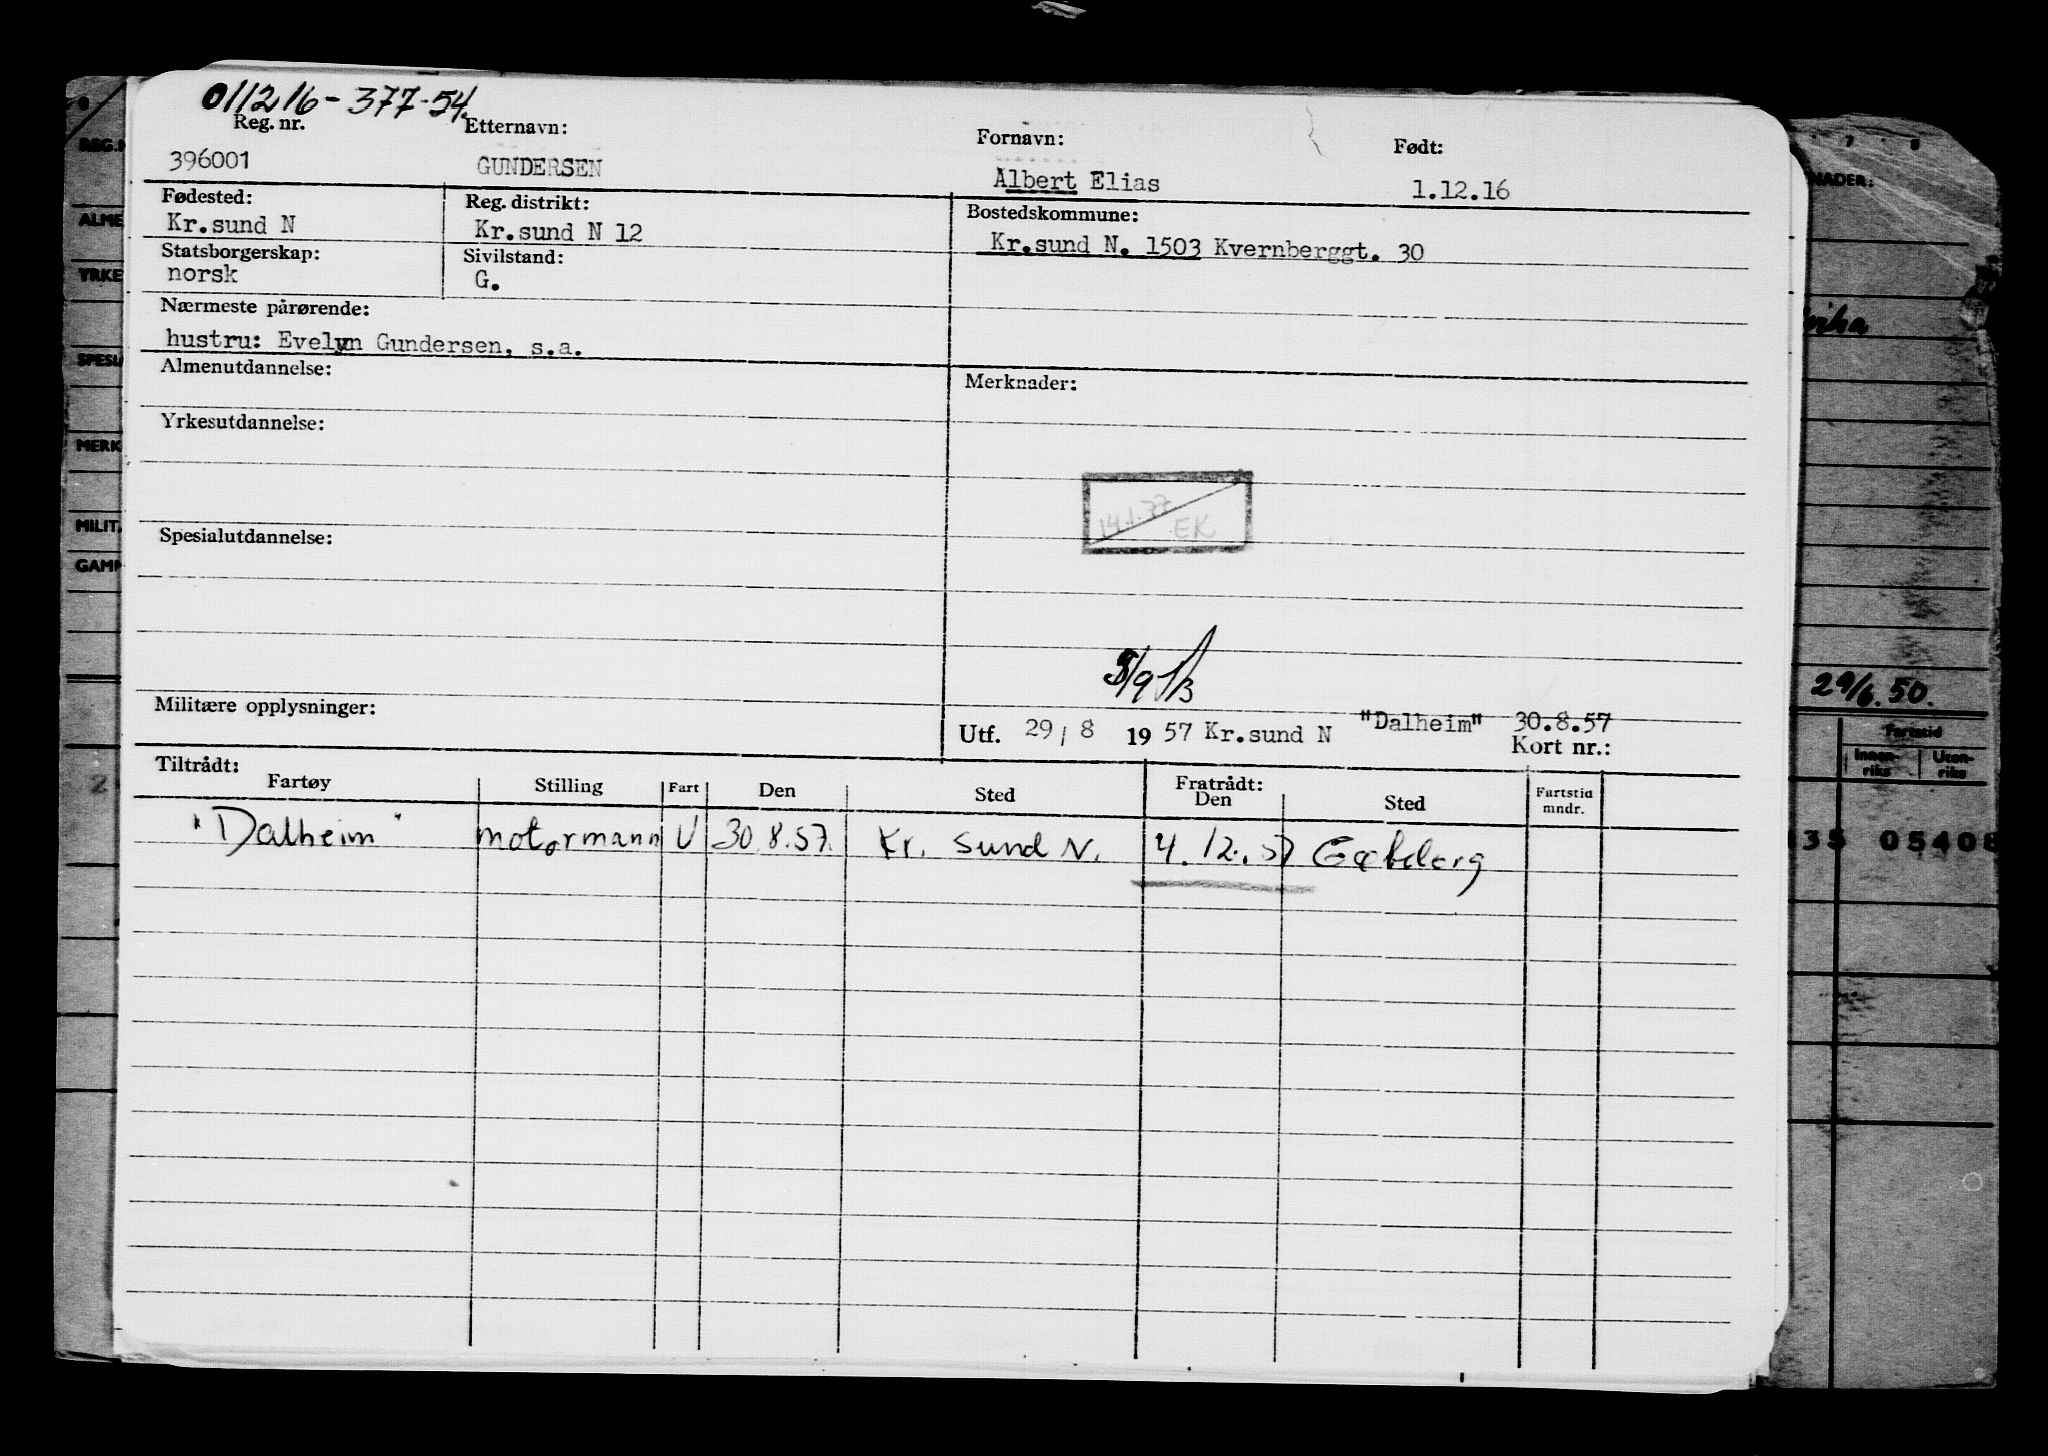 011216-377-54.
Reg. nr. Etternavn: Fornavn: Født:
396001 GUNDERSEN Albert Elias 1.12.16
Fødested: Reg. distrikt: Bostedskommune:
Kr.sund N Kr.sund N 12 Kr.sund N. 1503 Kvernberggt. 30
Statsborgerskap: Sivilstand:
norsk G.
Nærmeste pårørende:
hustru: Evelyn Gundersen, s.a.
Almenutdannelse: Merknader:
Yrkesutdannelse:
EK
Spesialutdannelse:
Militære opplysninger:
Utf. 29/8 1957 Kr.sund N "Dalheim" 30.8.57
Kort nr.:
Tiltrådt: Fratrådt:
Fartøy Stilling Fart Den Sted Den Sted Fartstid mndr.
"Dalheim" motormann U 30.8.57. Kr. Sund N. 4.12.57
REG.N
ALME
YRKE
SPESIA
MERK
MILIT.
GAMM
7 8
NADER:
29/6.50.
Fartstid
Innen-riks Uten-riks
135 05408